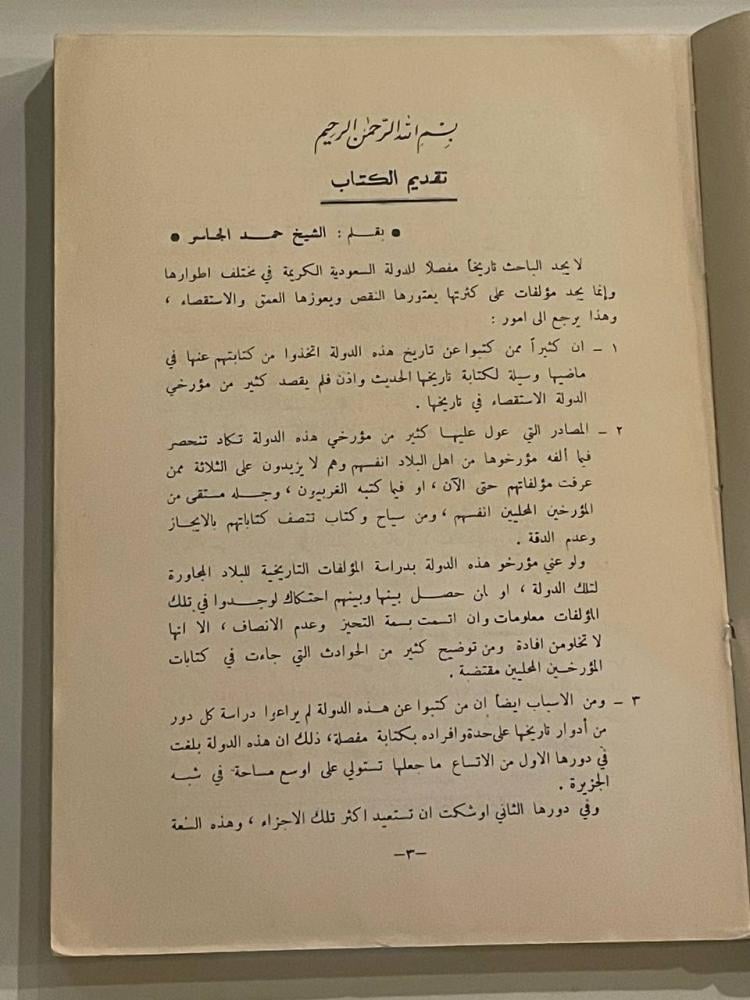 بسم الله الرحمن الرحيم
تقديم الكتاب
● بقـلـم : الشيخ حمـد الجاسر ●
لا يجد الباحث تاريخاً مفصلاً للدولة السعودية الكريمة في مختلف اطوارها
وإنما يجد مؤلفات على كثرتها يعتورها النقص ويعوزها العمق والاستقصاء ،
وهذا يرجع الى امور :
١ – ان كثيراً ممن كتبوا عن تاريخ هذه الدولة اتخذوا من كتابتهم عنها في
ماضيها وسيلة لكتابة تاريخها الحديث واذن فلم يقصد كثير من مؤرخي
الدولة الاستقصاء في تاريخها .
٢ – المصادر التي عول عليهـا كثير من مؤرخي هذه الدولة تكاد تنحصر
فيما ألفه مؤرخوها من اهل البلاد انفسهم وهم لا يزيدون على الثلاثة ممن
عرفت مؤلفاتهم حتى الآن ، او فيما كتبه الغربيون ، وجـله مستقى من
المؤرخين المحليين انفسهم ، ومن سياح وكتاب تتصف كتاباتهم بالايجاز
وعدم الدقة .
ولو عني مؤرخو هذه الدولة بدراسة المؤلفات التاريخية للبلاد المجاورة
لتلك الدولة ، او لمن حصـل بينها وبينهم احتكاك لوجـدوا في تلك
المؤلفات معلومات وان اتسمت بسمة التحيز وعدم الانصاف ، الا انها
لا تخلو من افادة ومن توضيح كثير من الحوادث التي جاءت في كتابات
المؤرخـين المحليين مقتضبة .
٣ – ومن الاسباب ايضاً ان من كتبوا عن هـذه الدولة لم يراعوا دراسة كل دور
من أدوار تاريخها على حدة وافراده بكتابة مفصلة، ذلك ان هذه الدولة بلغت
في دورها الاول من الاتساع ما جعلها تستولي على اوسع مساحة في شبـه
الجزيرة .
وفي دورها الثاني اوشكت ان تستعيد اكثر تلك الاجزاء ، وهذه السعة
–٣–